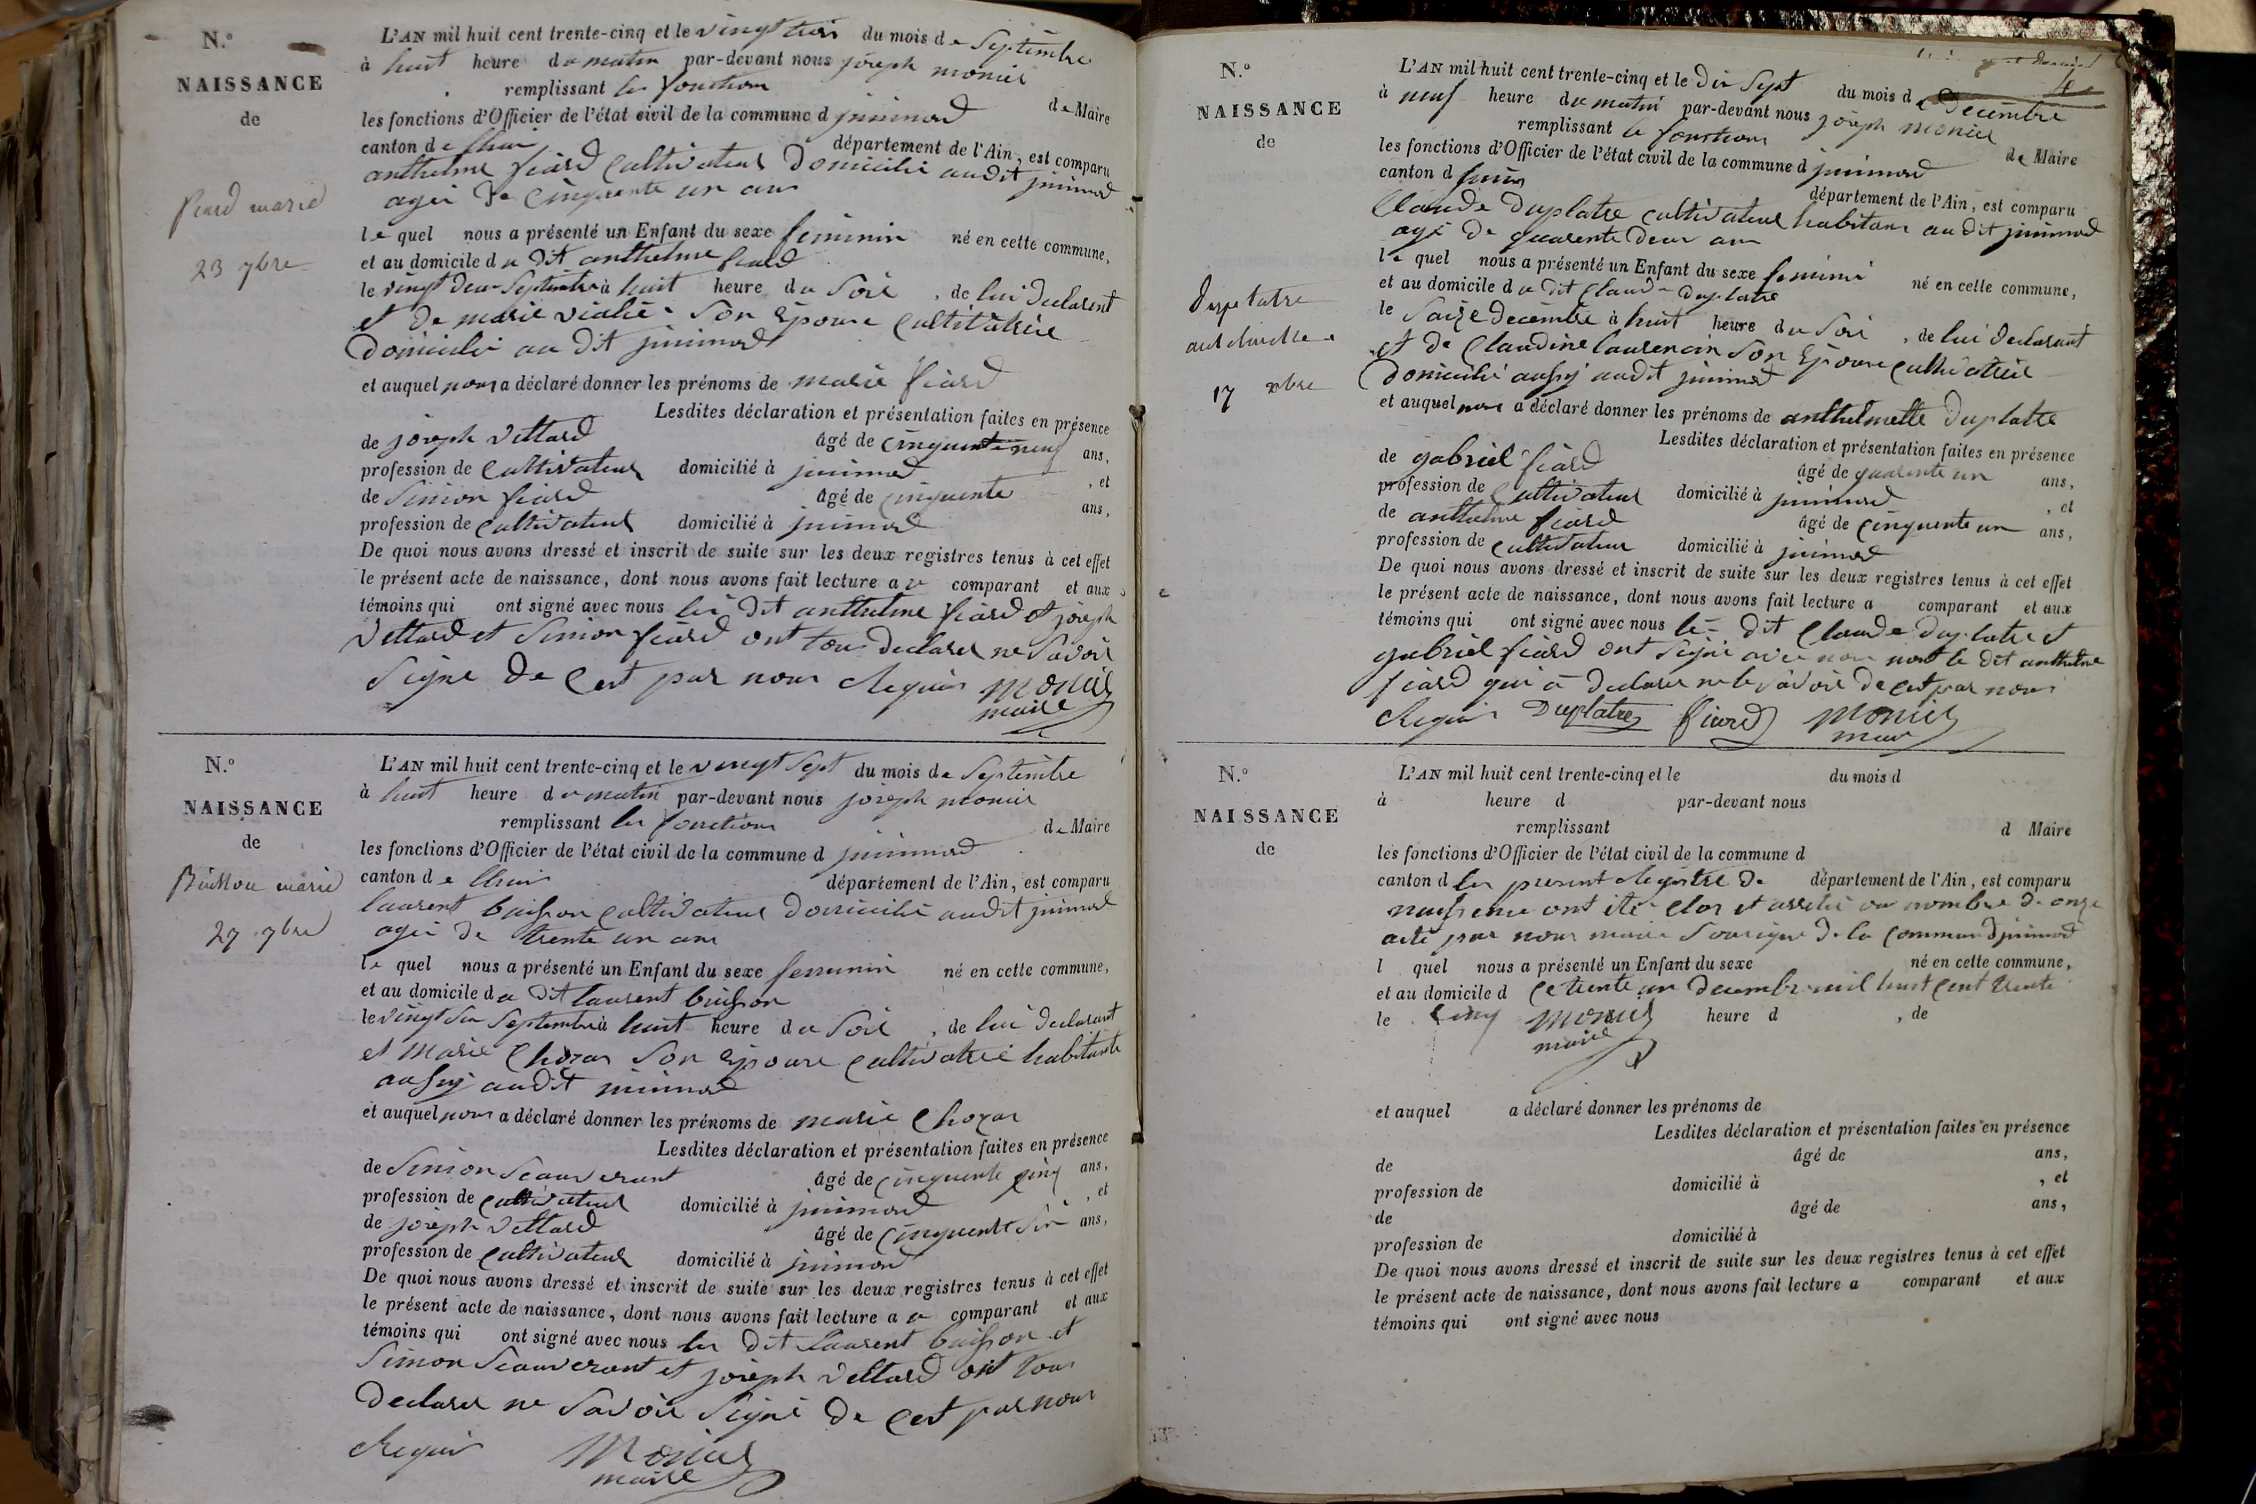 N.º
NAISSANCE
de
fiard marie
23 7bre
L'AN mil huit cent trente-cinq et le vingt trois du mois de Septembre
à huit heure du matin par-devant nous joseph monier
remplissant les fonctions
de Maire
les fonctions d'Officier de l'état civil de la commune d jujurieux
canton de
département de l'Ain, est comparu
anthelme fiard cultivateur domicilié audit
agé de cinquente un ans
le quel nous a présenté un Enfant du sexe feminin né en cette commune,
et au domicile du dit anthelme fiard
le vingt deux Septembre à huit heure du Soir, de lui declarent
et de marie vialié Son Epouse cultivatrice
domicilié au dit
et auquel nous a déclaré donner les prénoms de marie fiard
Lesdites déclaration et présentation faites en présence
de joseph vettard âgé de cinquente neuf ans,
profession de cultivateur domicilié à , et
de Simon fiard âgé de cinquente ans,
profession de cultivateur domicilié à
De quoi nous avons dressé et inscrit de suite sur les deux registres tenus à cet effet
le présent acte de naissance, dont nous avons fait lecture au comparant et aux
témoins qui ont signé avec nous les dit anthelme fiard et joseph
vettard et Simon fiard ont tous declarer ne Savoir
Signe de cest par nous Requis monier
maire
N.º
NAISSANCE
de
Buisson marie
27 7bre
L'AN mil huit cent trente-cinq et le vingt Sept du mois de Septembre
à huit heure du matin par-devant nous joseph monier
remplissant les fonctions de Maire
les fonctions d'Officier de l'état civil de la commune d
canton de
département de l'Ain, est comparu
laurent buisson cultivateur domicilié audit
agé de trente un ans
le quel nous a présenté un Enfant du sexe femenin né en cette commune,
et au domicile du dit laurent buisson
le vingt Six Septembre à huit heure du Soir, de lui declarant
et Marie Chozas Son Epouse cultivatrice habitante
aussy audit
et auquel nous a déclaré donner les prénoms de marie Chozas
Lesdites déclaration et présentation faites en présence
de Simon Seauverant âgé de cinquente cinq ans,
profession de cultivateur domicilié à , et
de joseph vettard âgé de cinquente Six ans,
profession de cultivateur domicilié à
De quoi nous avons dressé et inscrit de suite sur les deux registres tenus à cet effet
le présent acte de naissance, dont nous avons fait lecture au comparant et aux
témoins qui ont signé avec nous les dit laurent buisson et
Simon Seauverant et joseph vettard ont tous
declarer ne Savoir Signé de cest par nous
Requis Monier
maire
N.º
NAISSANCE
de
Duplatre
anthelmette
17 xbre
L'AN mil huit cent trente-cinq et le dix Sept du mois de Decembre
à neuf heure du matin par-devant nous joseph monier
remplissant les fonctions
de Maire
les fonctions d'Officier de l'état civil de la commune d
canton d
département de l'Ain, est comparu
Claude Duplatre cultivateur habitans au dit
agé de quarente deux ans
le quel nous a présenté un Enfant du sexe feminin né en cette commune,
et au domicile du dit Claude duplatre
le Saize decembre à huit heure du Soir, de lui declarant
et de Claudine laurencin Son Epouse cultivatrice
domicilié aussy audit
et auquel nous a déclaré donner les prénoms de anthelmette Duplatre
Lesdites déclaration et présentation faites en présence
de gabriel fiard âgé de quarente un ans,
profession de cultivateur domicilié à , et
de anthelme fiard âgé de cinquente un ans,
profession de cultivateur domicilié à
De quoi nous avons dressé et inscrit de suite sur les deux registres tenus à cet effet
le présent acte de naissance, dont nous avons fait lecture a comparant et aux
témoins qui ont signé avec nous les dit Claude duplatre et
gabriel fiard ont Signé avec nous le dit anthelme
fiard qui a declarer ne le Savoir de cest par nous
Requis Duplatre fiard Monier
maire
N.º
NAISSANCE
de
L'AN mil huit cent trente-cinq et le du mois d
à heure d par-devant nous
remplissant d Maire
les fonctions d'Officier de l'état civil de la commune d
canton d les present Registre de département de l'Ain, est comparu
naissence ont été clos et arrêté au nombre de onze
acte par nous maire Soussigné de la commune d
l quel nous a présenté un Enfant du sexe né en cette commune,
et au domicile d ce trente un decembre mil huit cent trente
le cinq Monier heure d , de
maire
et auquel a déclaré donner les prénoms de
Lesdites déclaration et présentation faites en présence
de âgé de ans,
profession de domicilié à , et
de âgé de ans,
profession de domicilié à
De quoi nous avons dressé et inscrit de suite sur les deux registres tenus à cet effet
le présent acte de naissance, dont nous avons fait lecture a comparant et aux
témoins qui ont signé avec nous